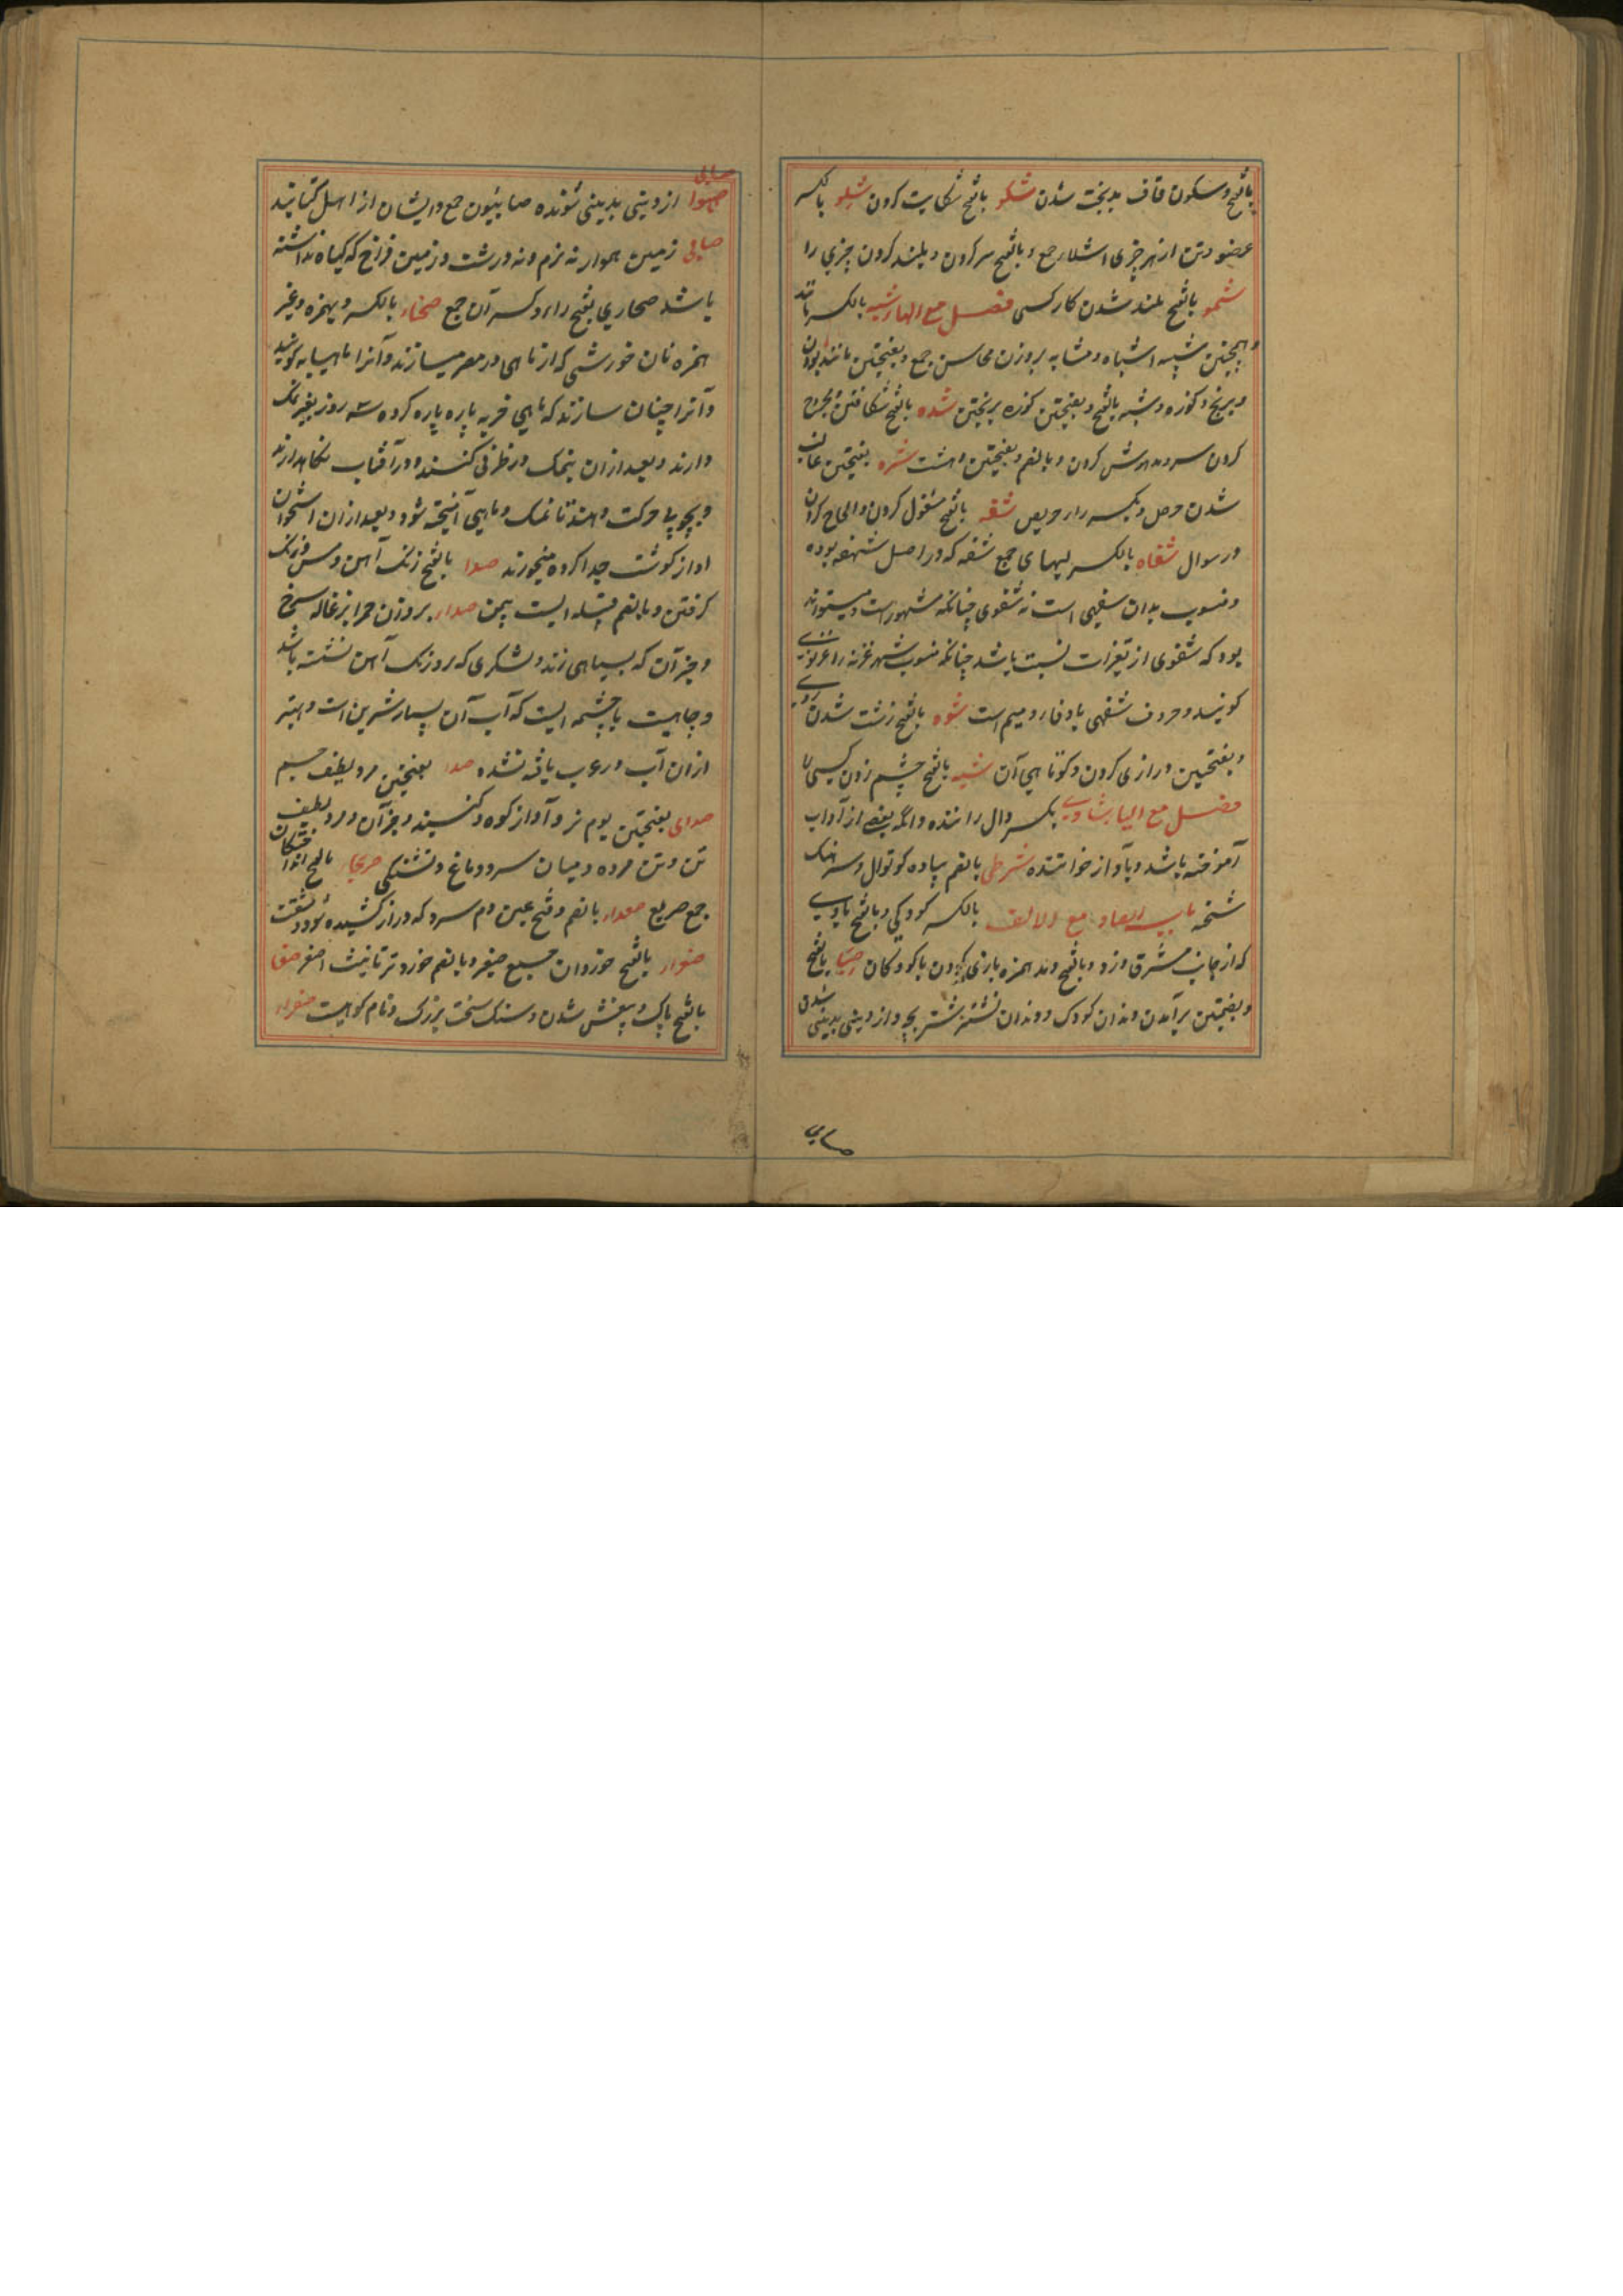 بالفتح و سکون قاف بدبخت شدن شکو بالفتح شکایت کردن شلو بالکسر
عضو و تن از هر چیزی اشلاء جمع و بالفتح سر کردن و بلند کردن چیزی را
شمو بالفتح بلند شدن کار کسی فصل مع الهاء شبه بالکسر مانند
و همچنین شبیه اشباه و مشابه بروزن محاسن جمع و بفتحتین مانند بودن
و برنج و کوزه و شبه بالفتح و بفتحتین کوزه برنجین شده بالفتح شکافتن و مجروح
کردن سر و مدهوش کردن و بالضم و بفتحتین دهشت شره بفتحتین غالب
شدن حرص و بکسر را حریص شفه بالفتح مشغول کردن و الحاح کردن
در سوال شفاه بالکسر لبهای جمع شفه که در اصل شفهه بوده
و منسوب بدان شفهی است نه شفوی چنانکه مشهور است و میتواند
بود که شفوی از تغیرات نسبت باشد چنانکه منسوب شهر غزنه را غزنوی
گویند و حروف شفهی با و فا و میم است شوه بالفتح زشت شدن روی
و بفتحتین درازی گردن و کوتاهی آن شیه بالفتح چشم زدن کسی را
فصل مع الیا شادی بکسر دال راننده و آنکه بعضی از آداب
آموخته باشد و بآواز خواننده شرطی بالضم پیاده کوتوال و سرهنک
شحنه باب الصاد مع الالف بالکسر کودکی و بالفتح بادی
که از جانب مشرق وزد و بالفتح و مد همزه بازی کردن با کودکان صبا بالفتح
و بضمتین برآمدن دندان کودک و دندان نشتر شتر بچه و از دینی بدینی شدن
صابی
صابی
از دینی بدینی شونده صابیون جمع و ایشان از اهل کتابند
زمین هموار نه نرم و نه درشت و زمین فراخ که گیاه نداشته
باشد صحاری بفتح راء و کسر آن جمع صحناء بالکسر و بهمزه و غیر
همزه نان خورشی که از ماهی در مصر میسازند و آنرا ماهیابه گویند
و آنرا چنان سازند که ماهی فربه پاره پاره کرده سه روز بغیر نمک
دارند و بعد از آن بنمک در ظرفی کنند و در آفتاب نگاهدارند
و بچوبها حرکت دهند تا نمک و ماهی آمیخته شود و بعد از آن استخوان
او از گوشت جدا کرده میخورند صدا بالفتح زنک آهن و مس و زنک
گرفتن و بالضم قبیله ایست بیمن صداء بروزن حمرا بزغاله سرخ
و جز آن که بسیاهی زند و لشکری که برو زنک آهن نشسته باشد
و چاهیست یا چشمه ایست که آب آن بسیار شیرین است و بهتر
ازان آب در عرب یافته نشده صدا بفتحتین مرد لطیف جسم
صدای بفتحتین بوم نر و آواز کوه و گنبد و جز آن و مرد لطیف
تن و تن مرده و میان سر و دماغ و تشنگی صرعی بالفتح افتادگان
جمع صریع صعداء بالضم و فتح عین دم سرد که دراز کشیده شود و مشقت
بالفتح خوردان جمع صغیر و بالضم خورد تر تانیث اصغر صفا
بالفتح پاک و بیغش شدن و سنک سخت بزرک و نام کوهیست صفراء